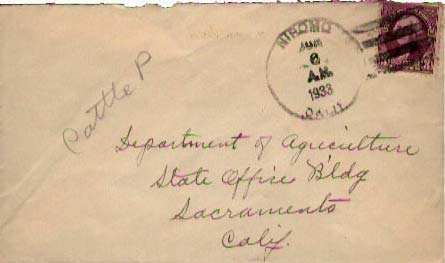 NIPOMO
JUN
6
A.M.
1933
CALIF.
Cattle P
Department of Agriculture
State Office B'ldg
Sacramento
Calif.